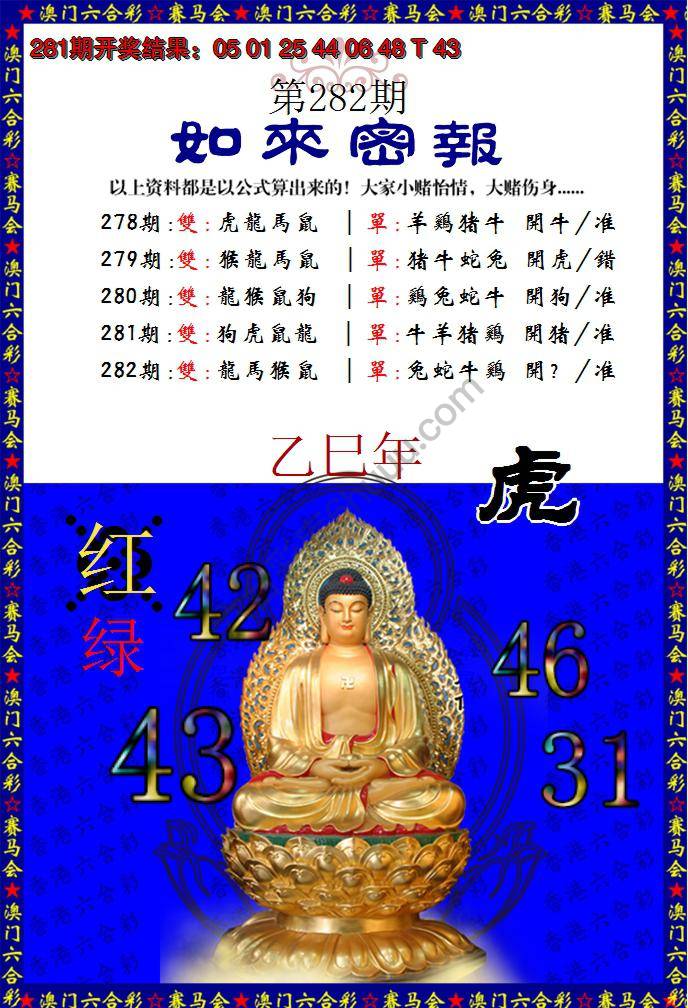 ★澳门六合彩☆赛马会★澳门六合彩☆赛马会★澳门六合彩☆赛马会★
281期开奖结果：05 01 25 44 06 48 T 43
第282期
如來密報
以上资料都是以公式算出来的！大家小赌怡情，大赌伤身......
278期:雙:虎龍馬鼠 |單:羊鷄猪牛 開牛/准
279期:雙:猴龍馬鼠 |單:猪牛蛇兔 開虎/錯
280期:雙:龍猴鼠狗 |單:鷄兔蛇牛 開狗/准
281期:雙:狗虎鼠龍 |單:牛羊猪鷄 開猪/准
282期:雙:龍馬猴鼠 |單:兔蛇牛鷄 開?/准
乙巳年
虎
红
绿
42
46
43
31
香港六合彩